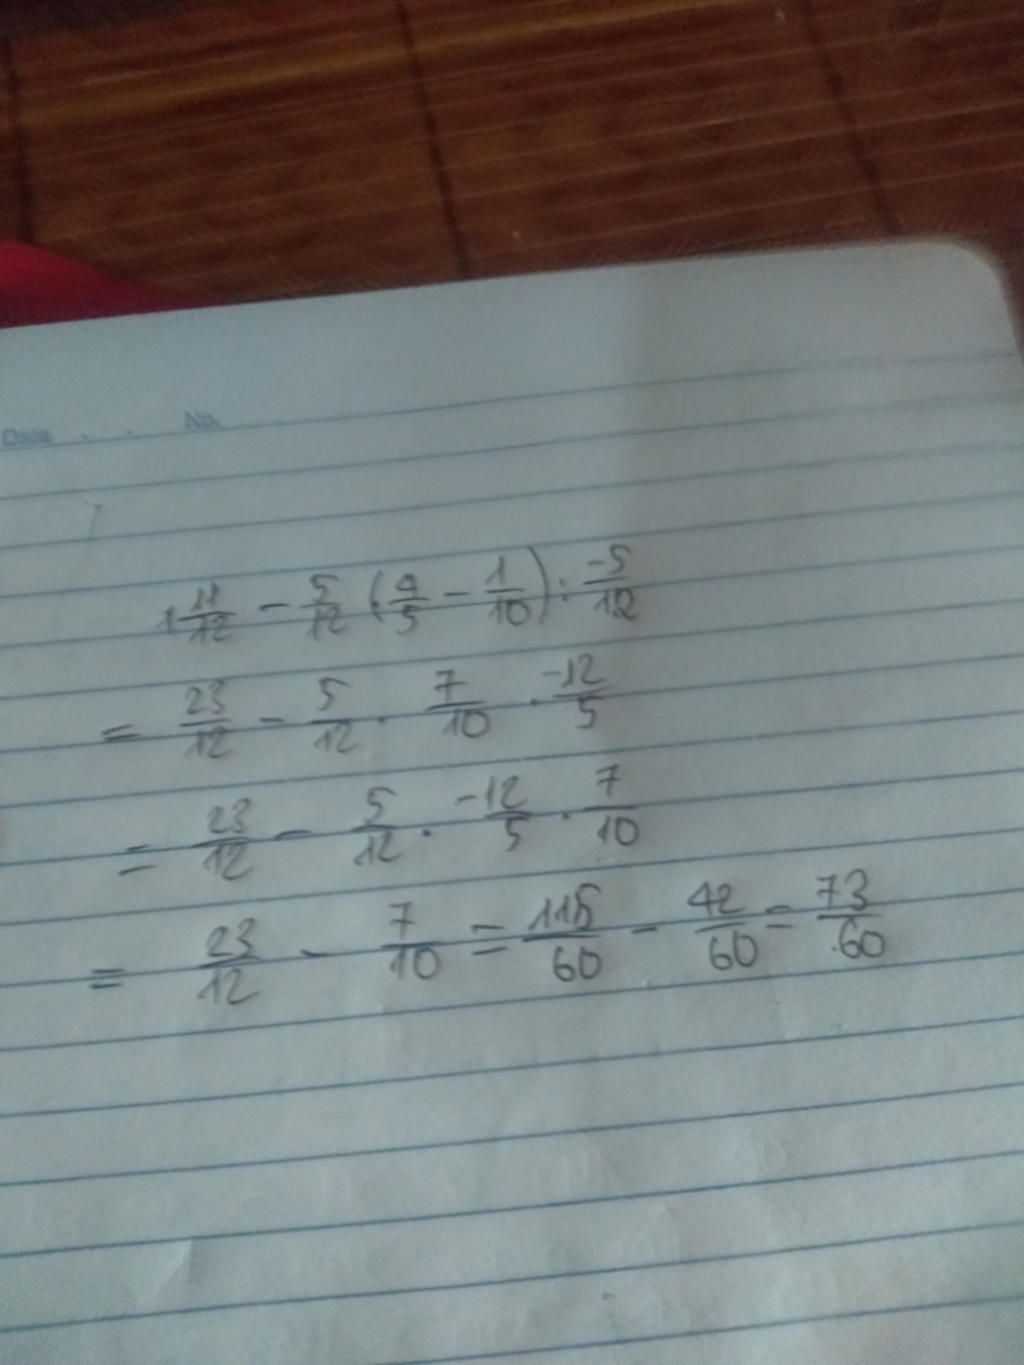 Date . . No.
1 11/12 - 5/12 . (4/5 - 1/10) : -5/12
= 23/12 - 5/12 . 7/10 . -12/5
= 23/12 - 5/12 . -12/5 . 7/10
= 23/12 - 7/10 = 115/60 - 42/60 = 73/60